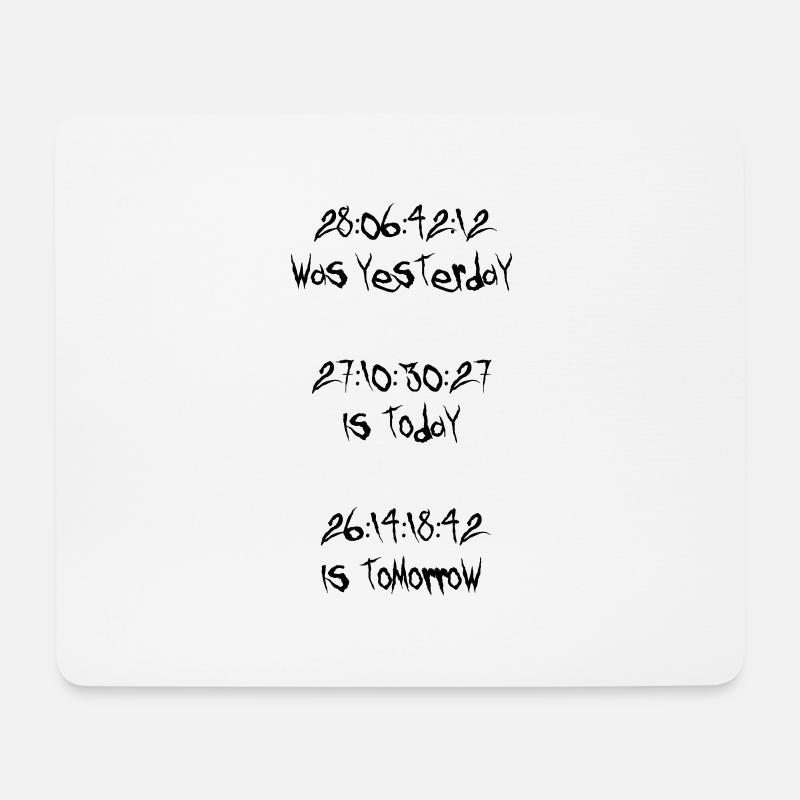 28:06:42:12
Was Yesterday
27:10:30:27
Is Today
26:14:18:42
Is Tomorrow